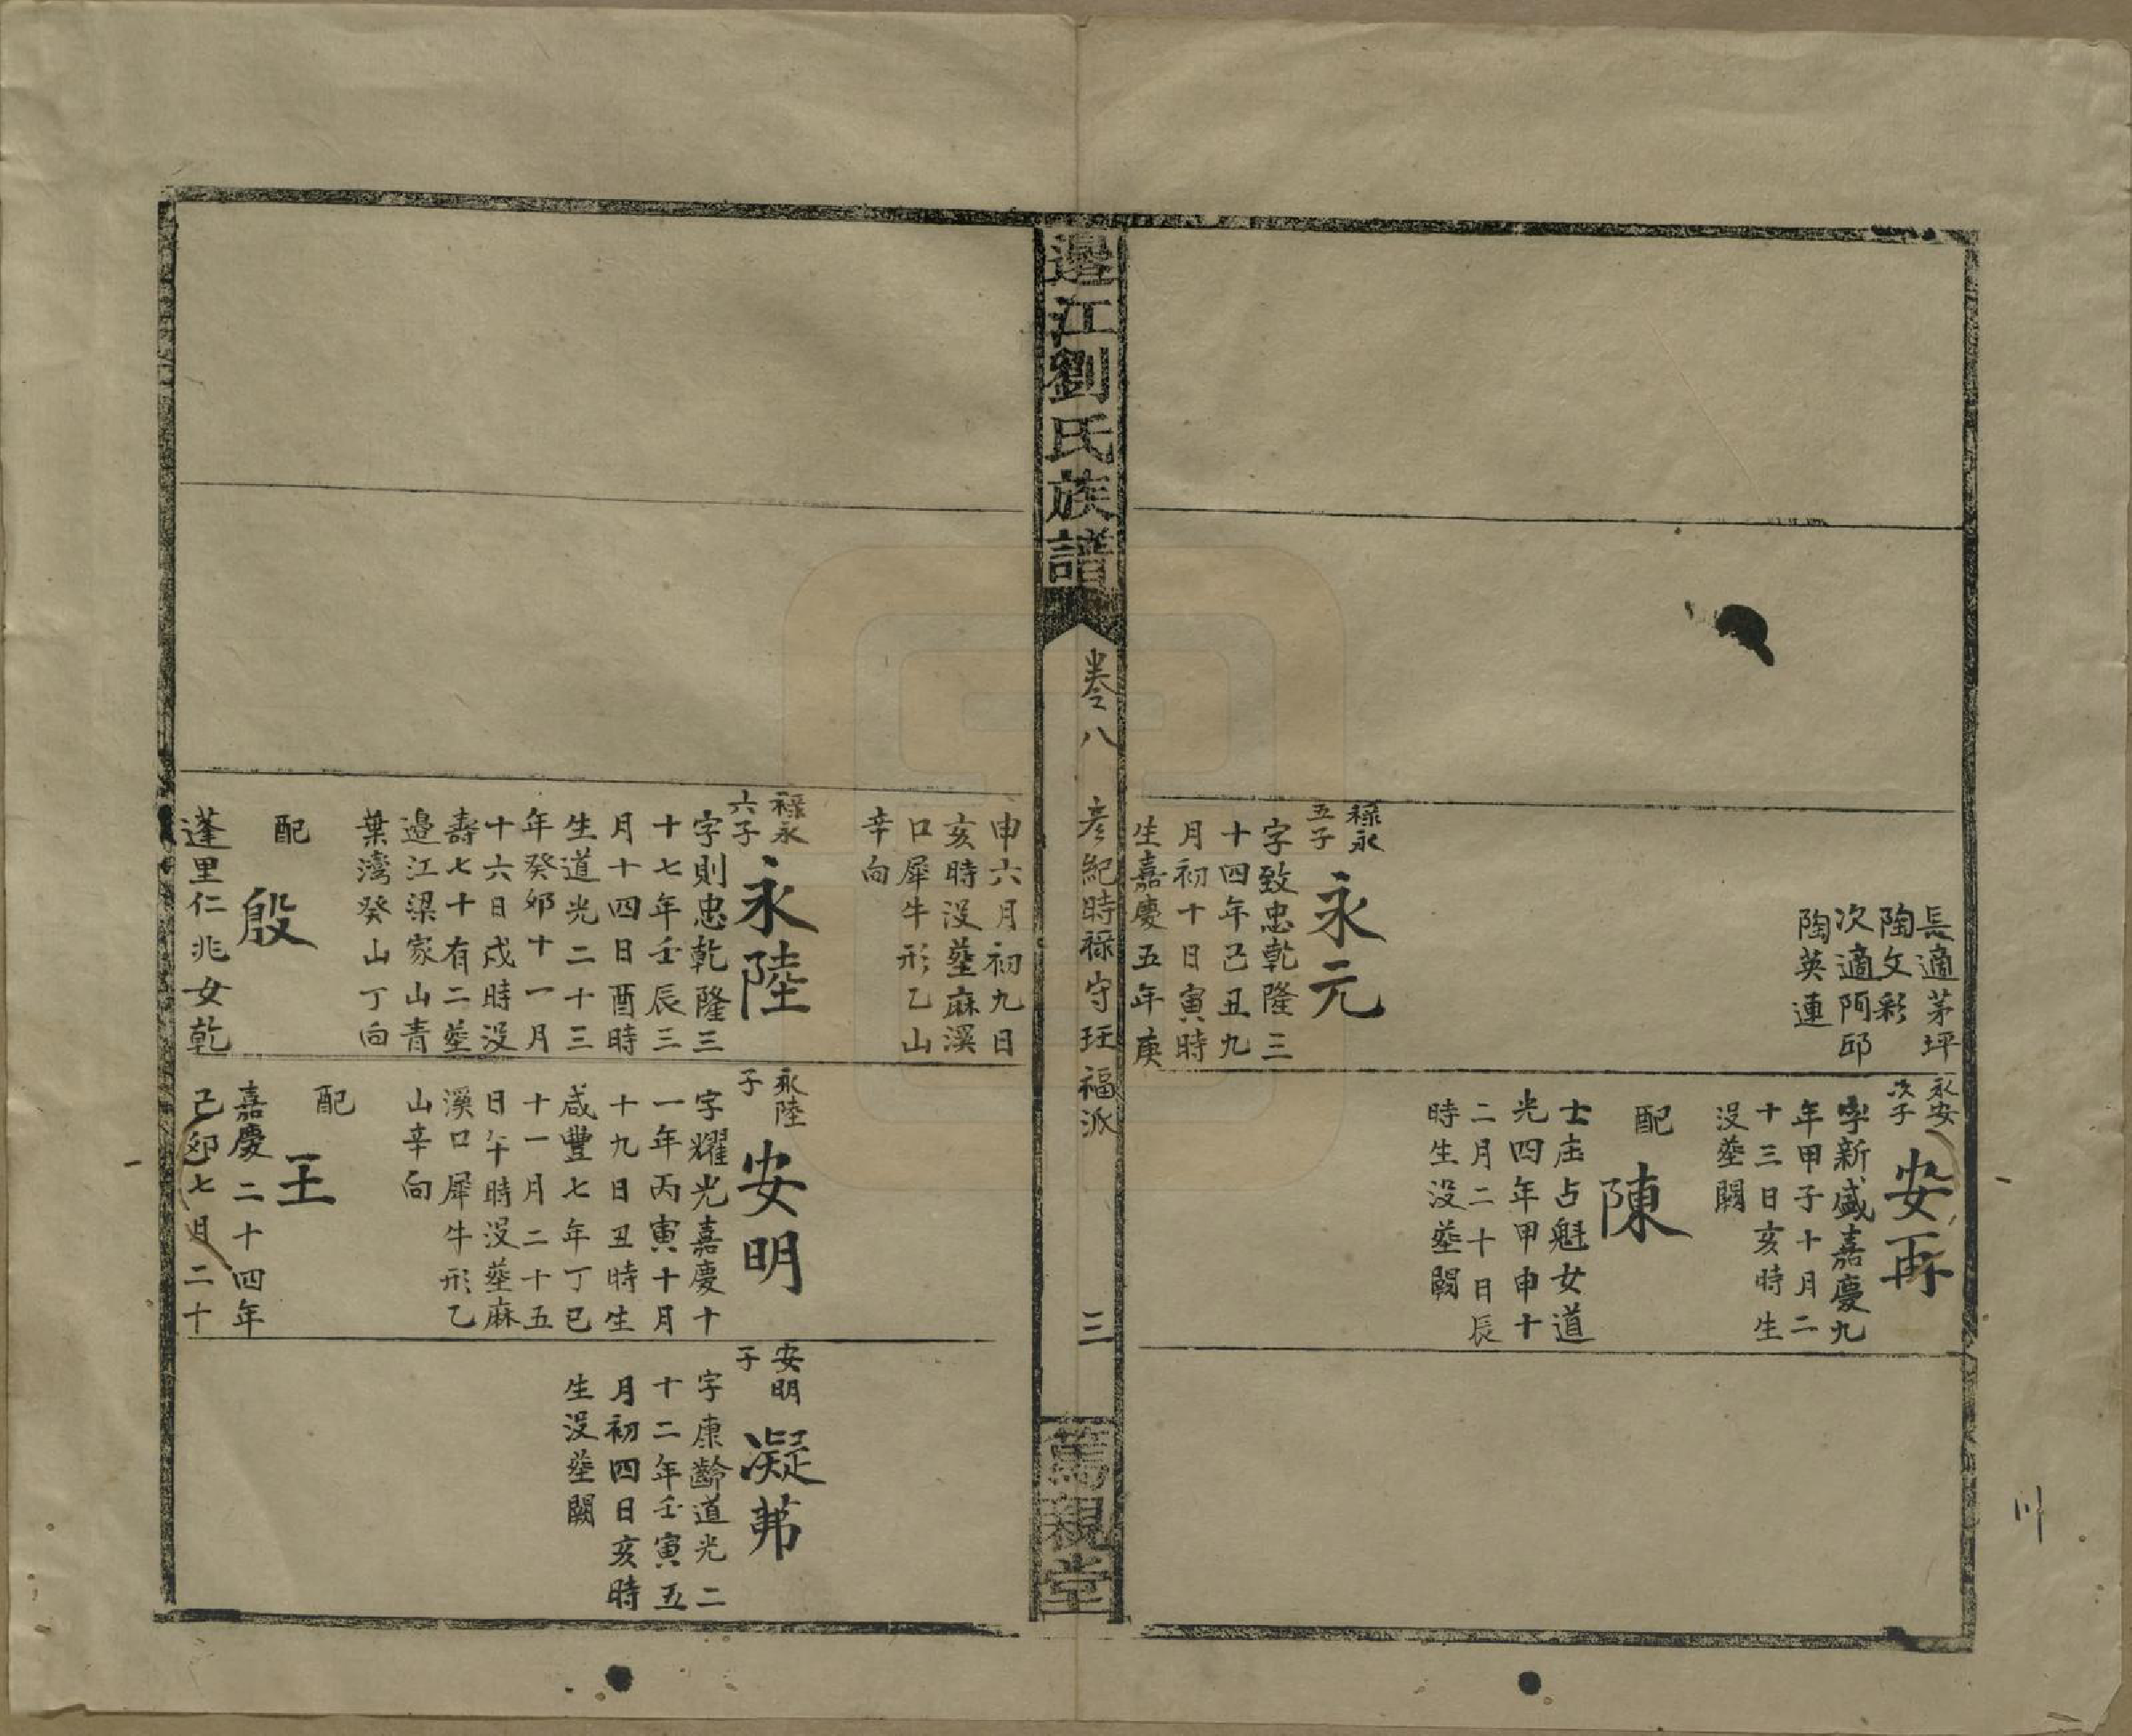 長適茅坪
陶文彩
次適阿邱
陶英連
祿永
五子
永元
字致忠乾隆三
十四年己丑九
月初十日寅時
生嘉慶五年庚
永安
次子
安再
字新盛嘉慶九
年甲子十月二
十三日亥時生
没塟闕
配
陳
士庄占魁女道
光四年甲申十
二月二十日辰
時生没塟闕
邊江劉氏族譜
卷八
彦紀時祿守玨福派
三
篤親堂
申六月初九日
亥時没塟麻溪
口犀牛形乙山
辛向
祿永
六子
永陸
字則忠乾隆三
十七年壬辰三
月十四日酉時
生道光二十三
年癸卯十一月
十六日戌時没
壽七十有二塟
邉江梁家山青
葉灣癸山丁向
配
殷
蓬里仁兆女乾
永陸
子
安明
字耀光嘉慶十
一年丙寅十月
十九日丑時生
咸豐七年丁巳
十一月二十五
日午時没塟麻
溪口犀牛形乙
山辛向
配
王
嘉慶二十四年
己卯七月二十
安明
子
凝茀
字康齡道光二
十二年壬寅五
月初四日亥時
生没塟闕